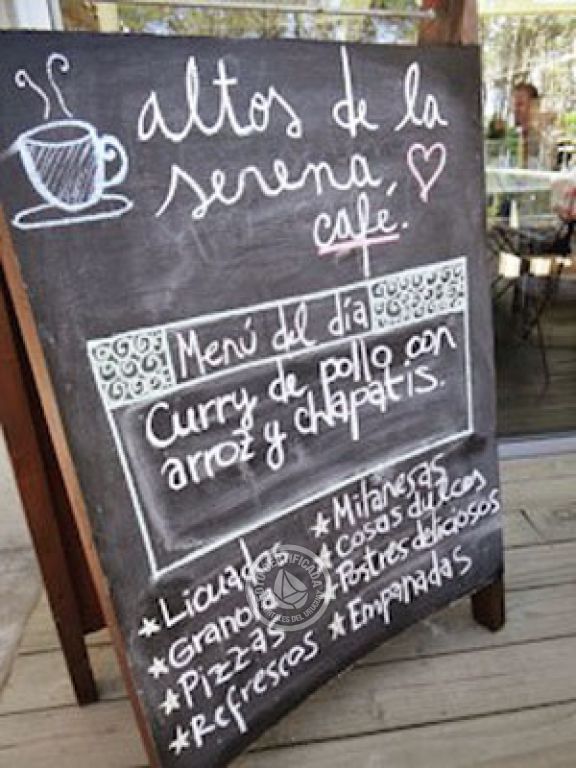 altos de la
serena,
café.
Menú del día
Curry de pollo con
arroz y chapatis.
* Licuados
* Granola
* Pizzas
* Refrescos
* Milanesas
* Cosas dulces
* Postres deliciosos
* Empanadas